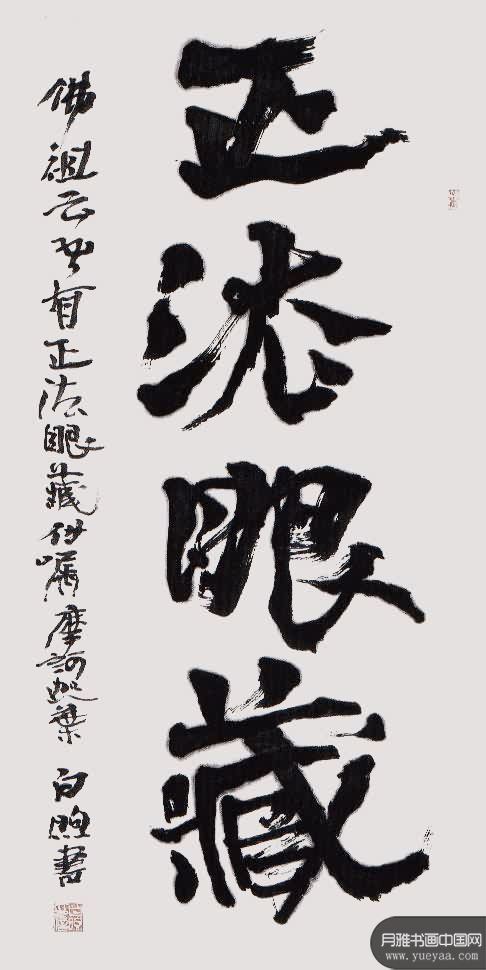 正法眼藏
佛祖云吾有正法眼藏付嘱摩訶迦葉 白煦書
月雅书画中国网
www.yueyaa.com